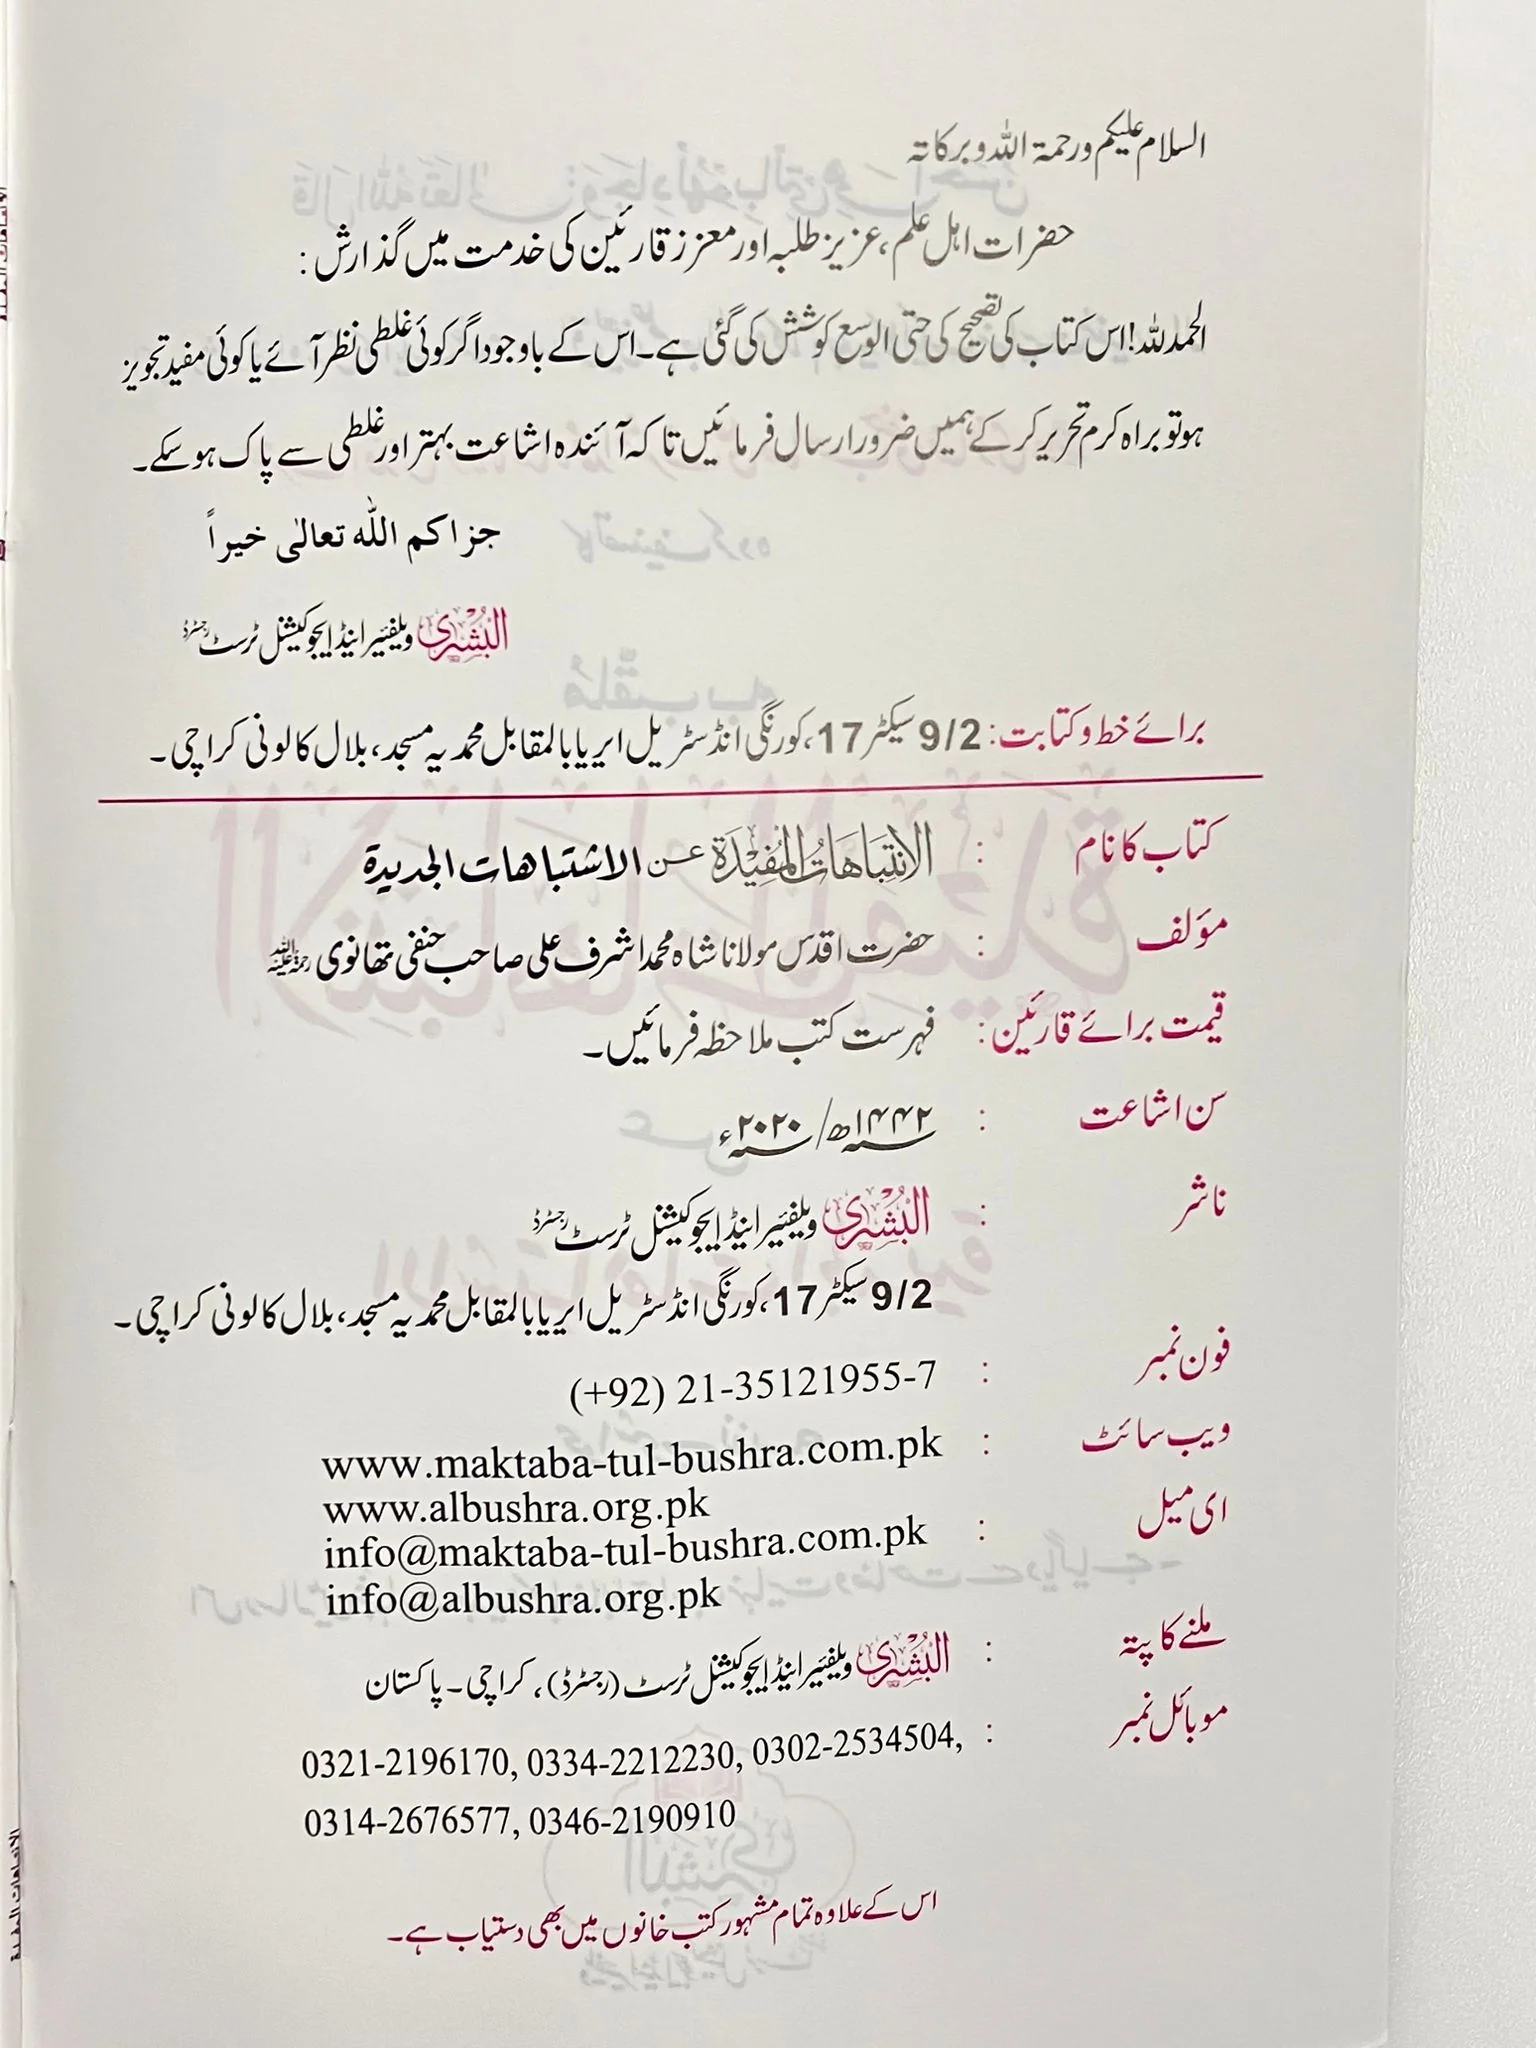 السلام علیکم ورحمۃ اللہ وبرکاتہ
حضرات اہل علم، عزیز طلبہ اور معزز قارئین کی خدمت میں گذارش:
الحمدللہ! اس کتاب کی تصحیح کی حتی الوسع کوشش کی گئی ہے۔ اس کے باوجود اگر کوئی غلطی نظر آئے یا کوئی مفید تجویز
ہو تو براہ کرم تحریر کر کے ہمیں ضرور ارسال فرمائیں تاکہ آئندہ اشاعت بہتر اور غلطی سے پاک ہو سکے۔
جزاکم اللہ تعالٰی خیراً
البُشریٰ ویلفئیر اینڈ ایجوکیشنل ٹرسٹ رجسٹرڈ
برائے خط و کتابت: 9/2 سیکٹر 17، کورنگی انڈسٹریل ایریا بالمقابل محمدیہ مسجد، بلال کالونی کراچی۔
کتاب کا نام : الِانْتِبَاهَاتُ المُفِیْدَة عن الاشتباهات الجدیدة
مؤلف : حضرت اقدس مولانا شاہ محمد اشرف علی صاحب حنفی تھانوی رحمۃ اللہ علیہ
قیمت برائے قارئین: فہرست کتب ملاحظہ فرمائیں۔
سن اشاعت : ۱۴۴۲ھ/ ۲۰۲۰ء
ناشر : البُشریٰ ویلفئیر اینڈ ایجوکیشنل ٹرسٹ رجسٹرڈ
9/2 سیکٹر 17، کورنگی انڈسٹریل ایریا بالمقابل محمدیہ مسجد، بلال کالونی کراچی۔
فون نمبر : (+92) 21-35121955-7
ویب سائٹ : www.maktaba-tul-bushra.com.pk
www.albushra.org.pk
ای میل : info@maktaba-tul-bushra.com.pk
info@albushra.org.pk
ملنے کا پتہ : البُشریٰ ویلفئیر اینڈ ایجوکیشنل ٹرسٹ (رجسٹرڈ)، کراچی۔ پاکستان
موبائل نمبر : 0321-2196170, 0334-2212230, 0302-2534504,
0314-2676577, 0346-2190910
اس کے علاوہ تمام مشہور کتب خانوں میں بھی دستیاب ہے۔